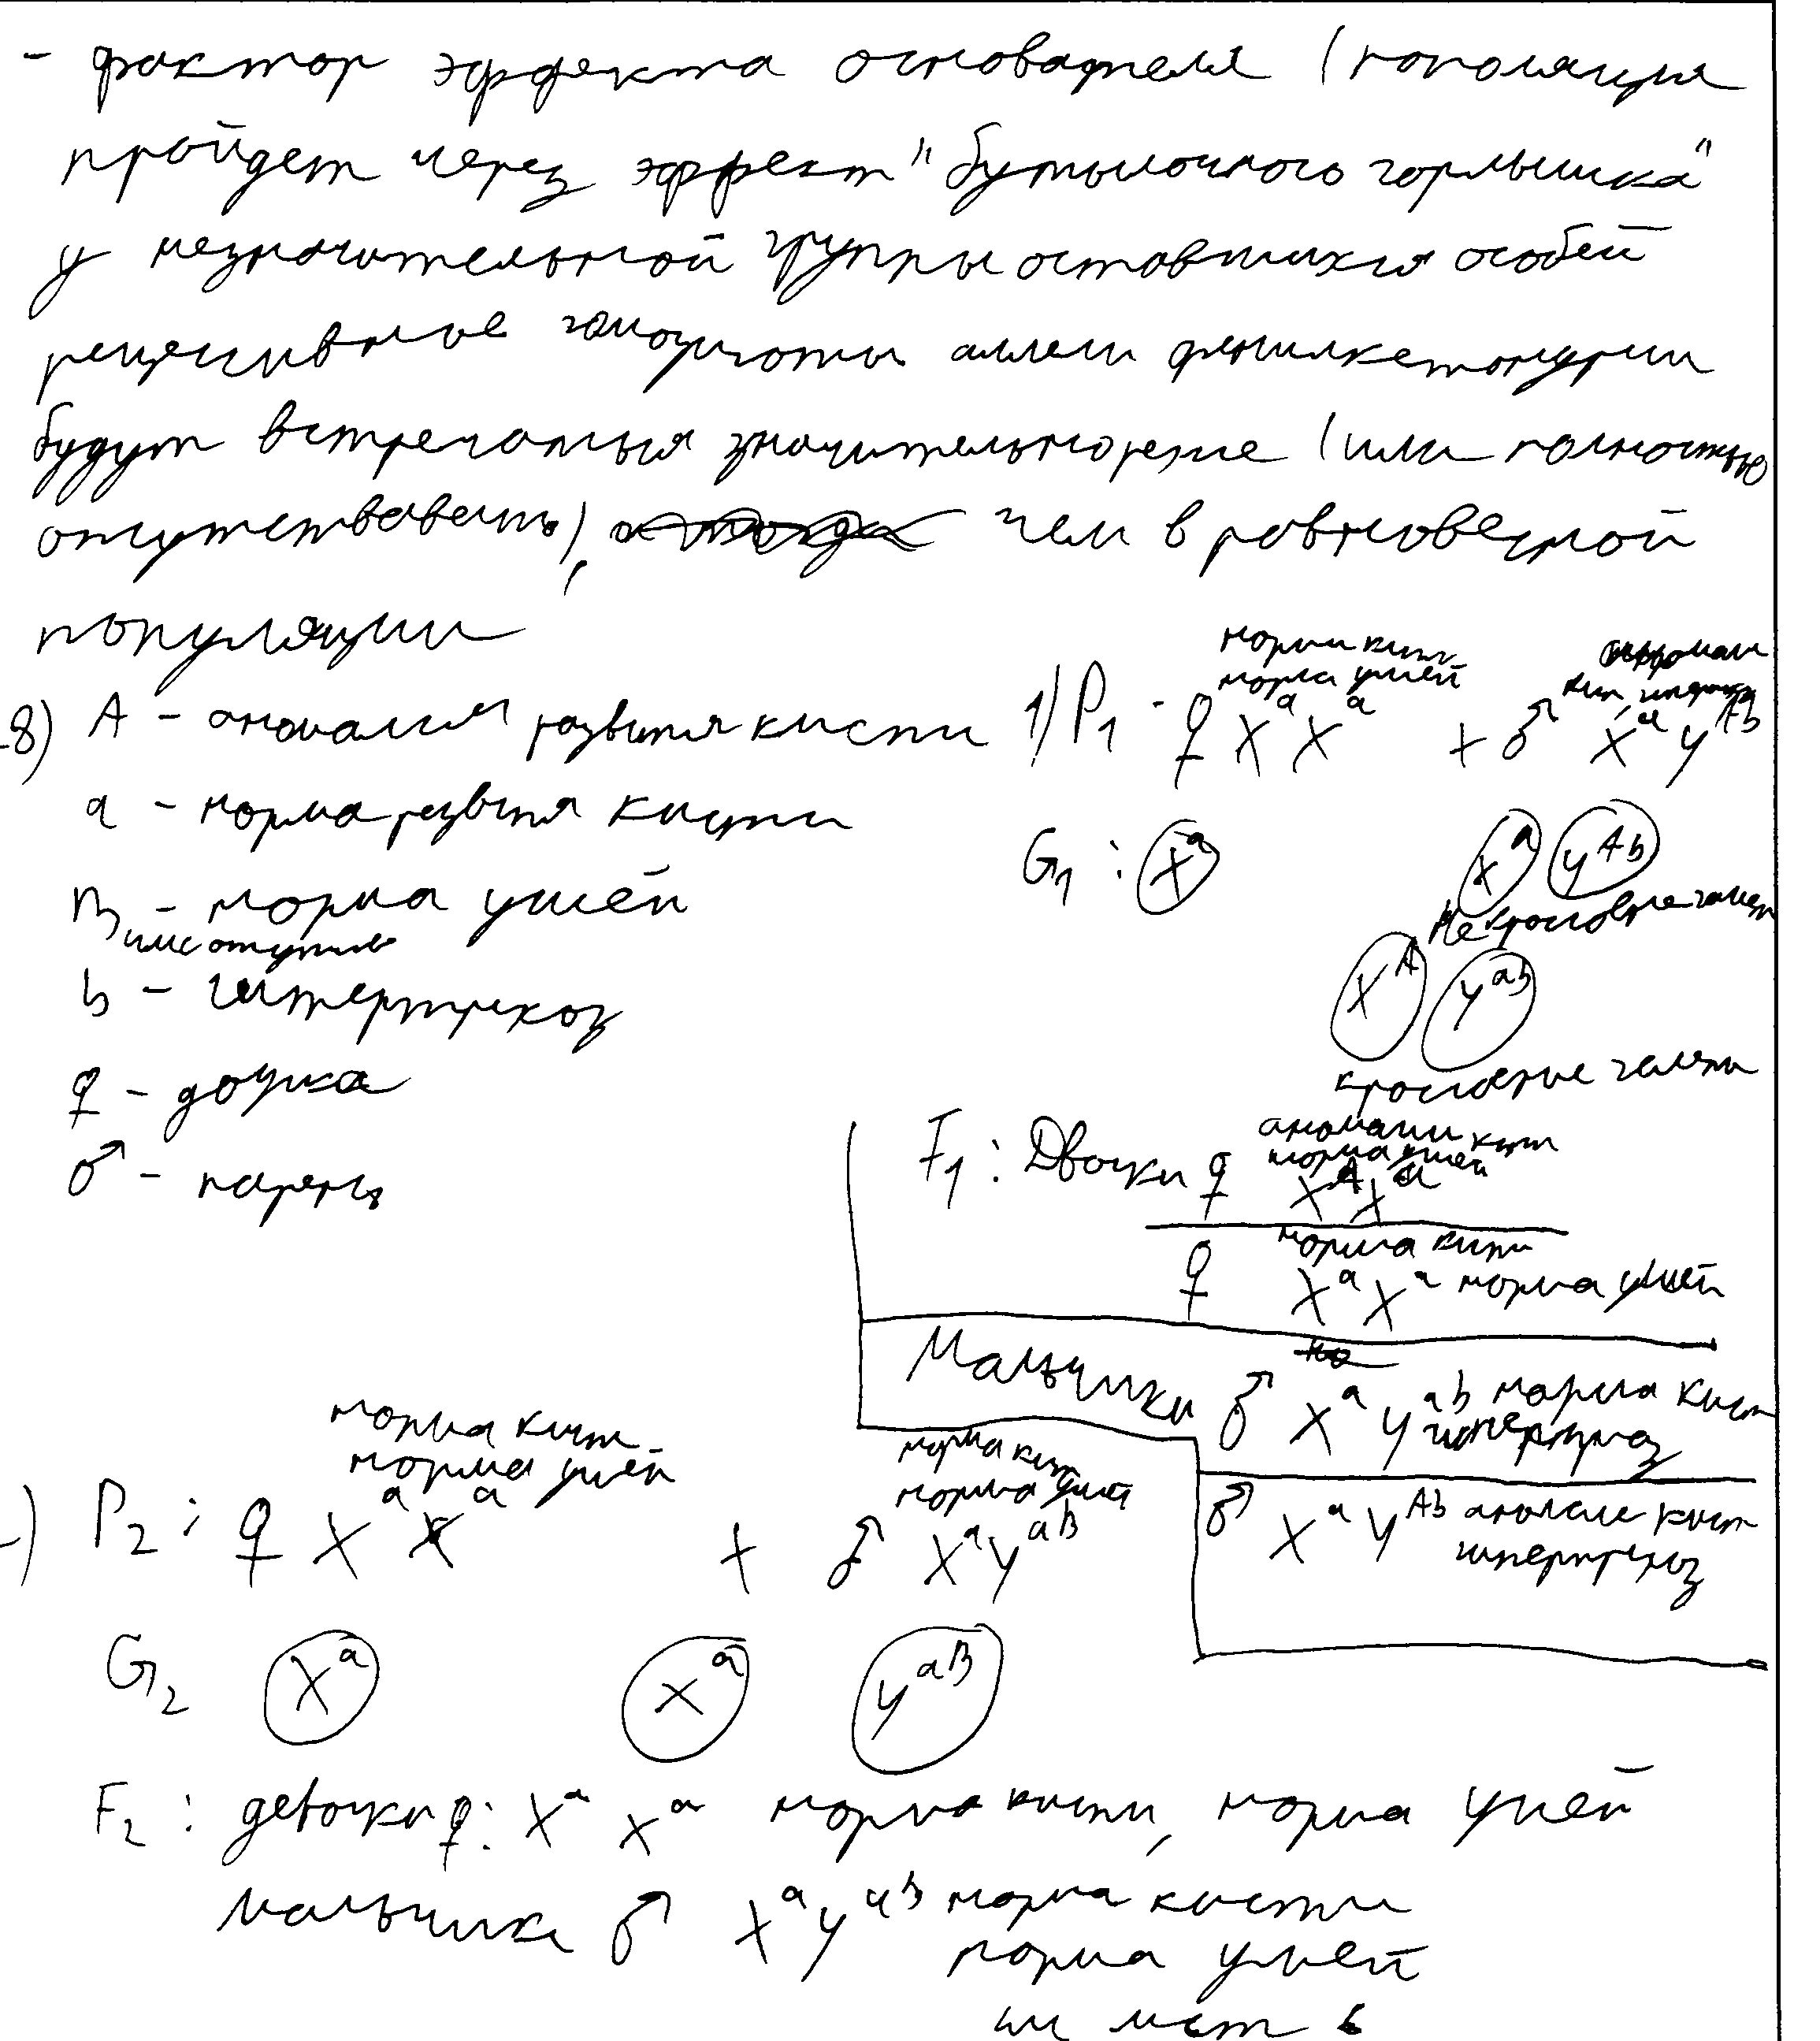 - фактор эффекта основателя (популяция
пройдет через эффект "бутылочного горлышка"
у незначительной группы оставшихся особей
рецессивные гомозиготы аллели фенилкетонурии
будут встречаться значительно реже (или полностью
отсутствовать), чем в равновесной
популяции
28) A - аномалия развития кисти
a - норма развития кисти
B - норма ушей
или отсутств
b - гипертрихоз
♀ - дочка
♂ - парень
норма кисти
норма ушей
аномал
кист, гипертр
1) P1 - ♀ XᵃXᵃ × ♂ XᵃYᴬᵇ
G1 : Xᵃ Xᵃ Yᴬᵇ
Некроссоверные гаметы
Xᴬ Yᵃᵇ
кроссоверные гаметы
аномали кист
норма ушей
F1 : Девочки ♀ XᴬXᵃ
норма кисти
♀ XᵃXᵃ норма ушей
Мальчики ♂ XᵃYᵃᵇ норма кист
гипертрихоз
♂ XᵃYᴬᵇ аномале кист
гипертрихоз
норма кист
норма ушей
норма кист
норма ушей
2) P2 : ♀ XᵃXᵃ × ♂ XᵃYᵃᴮ
G2 Xᵃ Xᵃ Yᵃᴮ
F2 : девочки ♀: XᵃXᵃ норма кисти, норма ушей
мальчика ♂ XᵃYᵃᴮ норма кисти
норма ушей